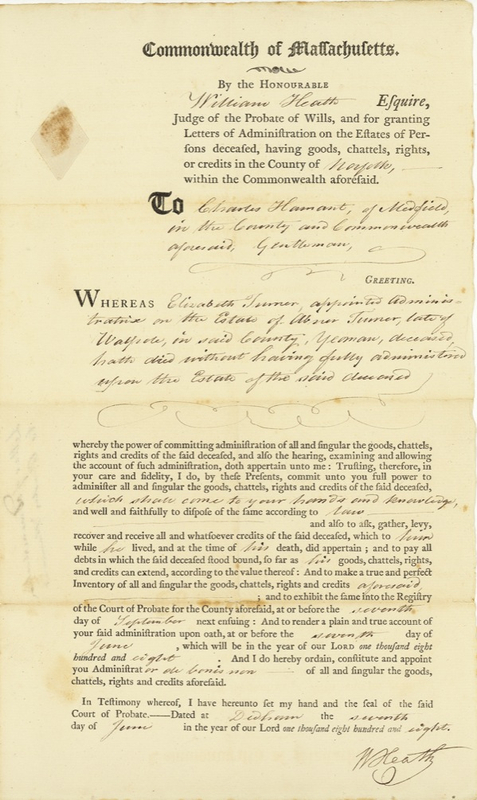 Commonwealth of Maſſachuſetts.
By the HONOURABLE
William Heath Eſquire,
Judge of the Probate of Wills, and for granting
Letters of Adminiſtration on the Eſtates of Per-
ſons deceaſed, having goods, chattels, rights,
or credits in the County of Norfolk,
within the Commonwealth aforeſaid.
To Charles Hamant, of Medfield,
in the County and Commonwealth
aforesaid, Gentleman,
GREETING.
WHEREAS Elizabeth Turner, appointed Adminis-
tratrix on the Estate of Abner Turner, late of
Walpole, in said County, Yeoman, deceased,
hath died without having fully administered
upon the Estate of the said deceased
whereby the power of committing adminiſtration of all and ſingular the goods, chattels,
rights and credits of the ſaid deceaſed, and alſo the hearing, examining and allowing
the account of ſuch adminiſtration, doth appertain unto me : Truſting, therefore, in
your care and fidelity, I do, by theſe Preſents, commit unto you full power to
adminiſter all and ſingular the goods, chattels, rights and credits of the ſaid deceaſed,
which shall come to your hands and knowledge,
and well and faithfully to diſpoſe of the ſame according to law
and alſo to aſk, gather, levy,
recover and receive all and whatſoever credits of the ſaid deceaſed, which to him
while he lived, and at the time of his death, did appertain ; and to pay all
debts in which the ſaid deceaſed ſtood bound, ſo far as his goods, chattels, rights,
and credits can extend, according to the value thereof : And to make a true and perfect
Inventory of all and ſingular the goods, chattels, rights and credits aforesaid
; and to exhibit the ſame into the Regiſtry
of the Court of Probate for the County aforeſaid, at or before the seventh
day of September next enſuing : And to render a plain and true account of
your ſaid adminiſtration upon oath, at or before the seventh day of
June , which will be in the year of our LORD one thouſand eight
hundred and eight . And I do hereby ordain, conſtitute and appoint
you Adminiſtrator de bonis non of all and ſingular the goods,
chattels, rights and credits aforeſaid.
In Teſtimony whereof, I have hereunto ſet my hand and the ſeal of the ſaid
Court of Probate.——Dated at Dedham the seventh
day of June in the year of our Lord one thouſand eight hundred and eight.
W Heath